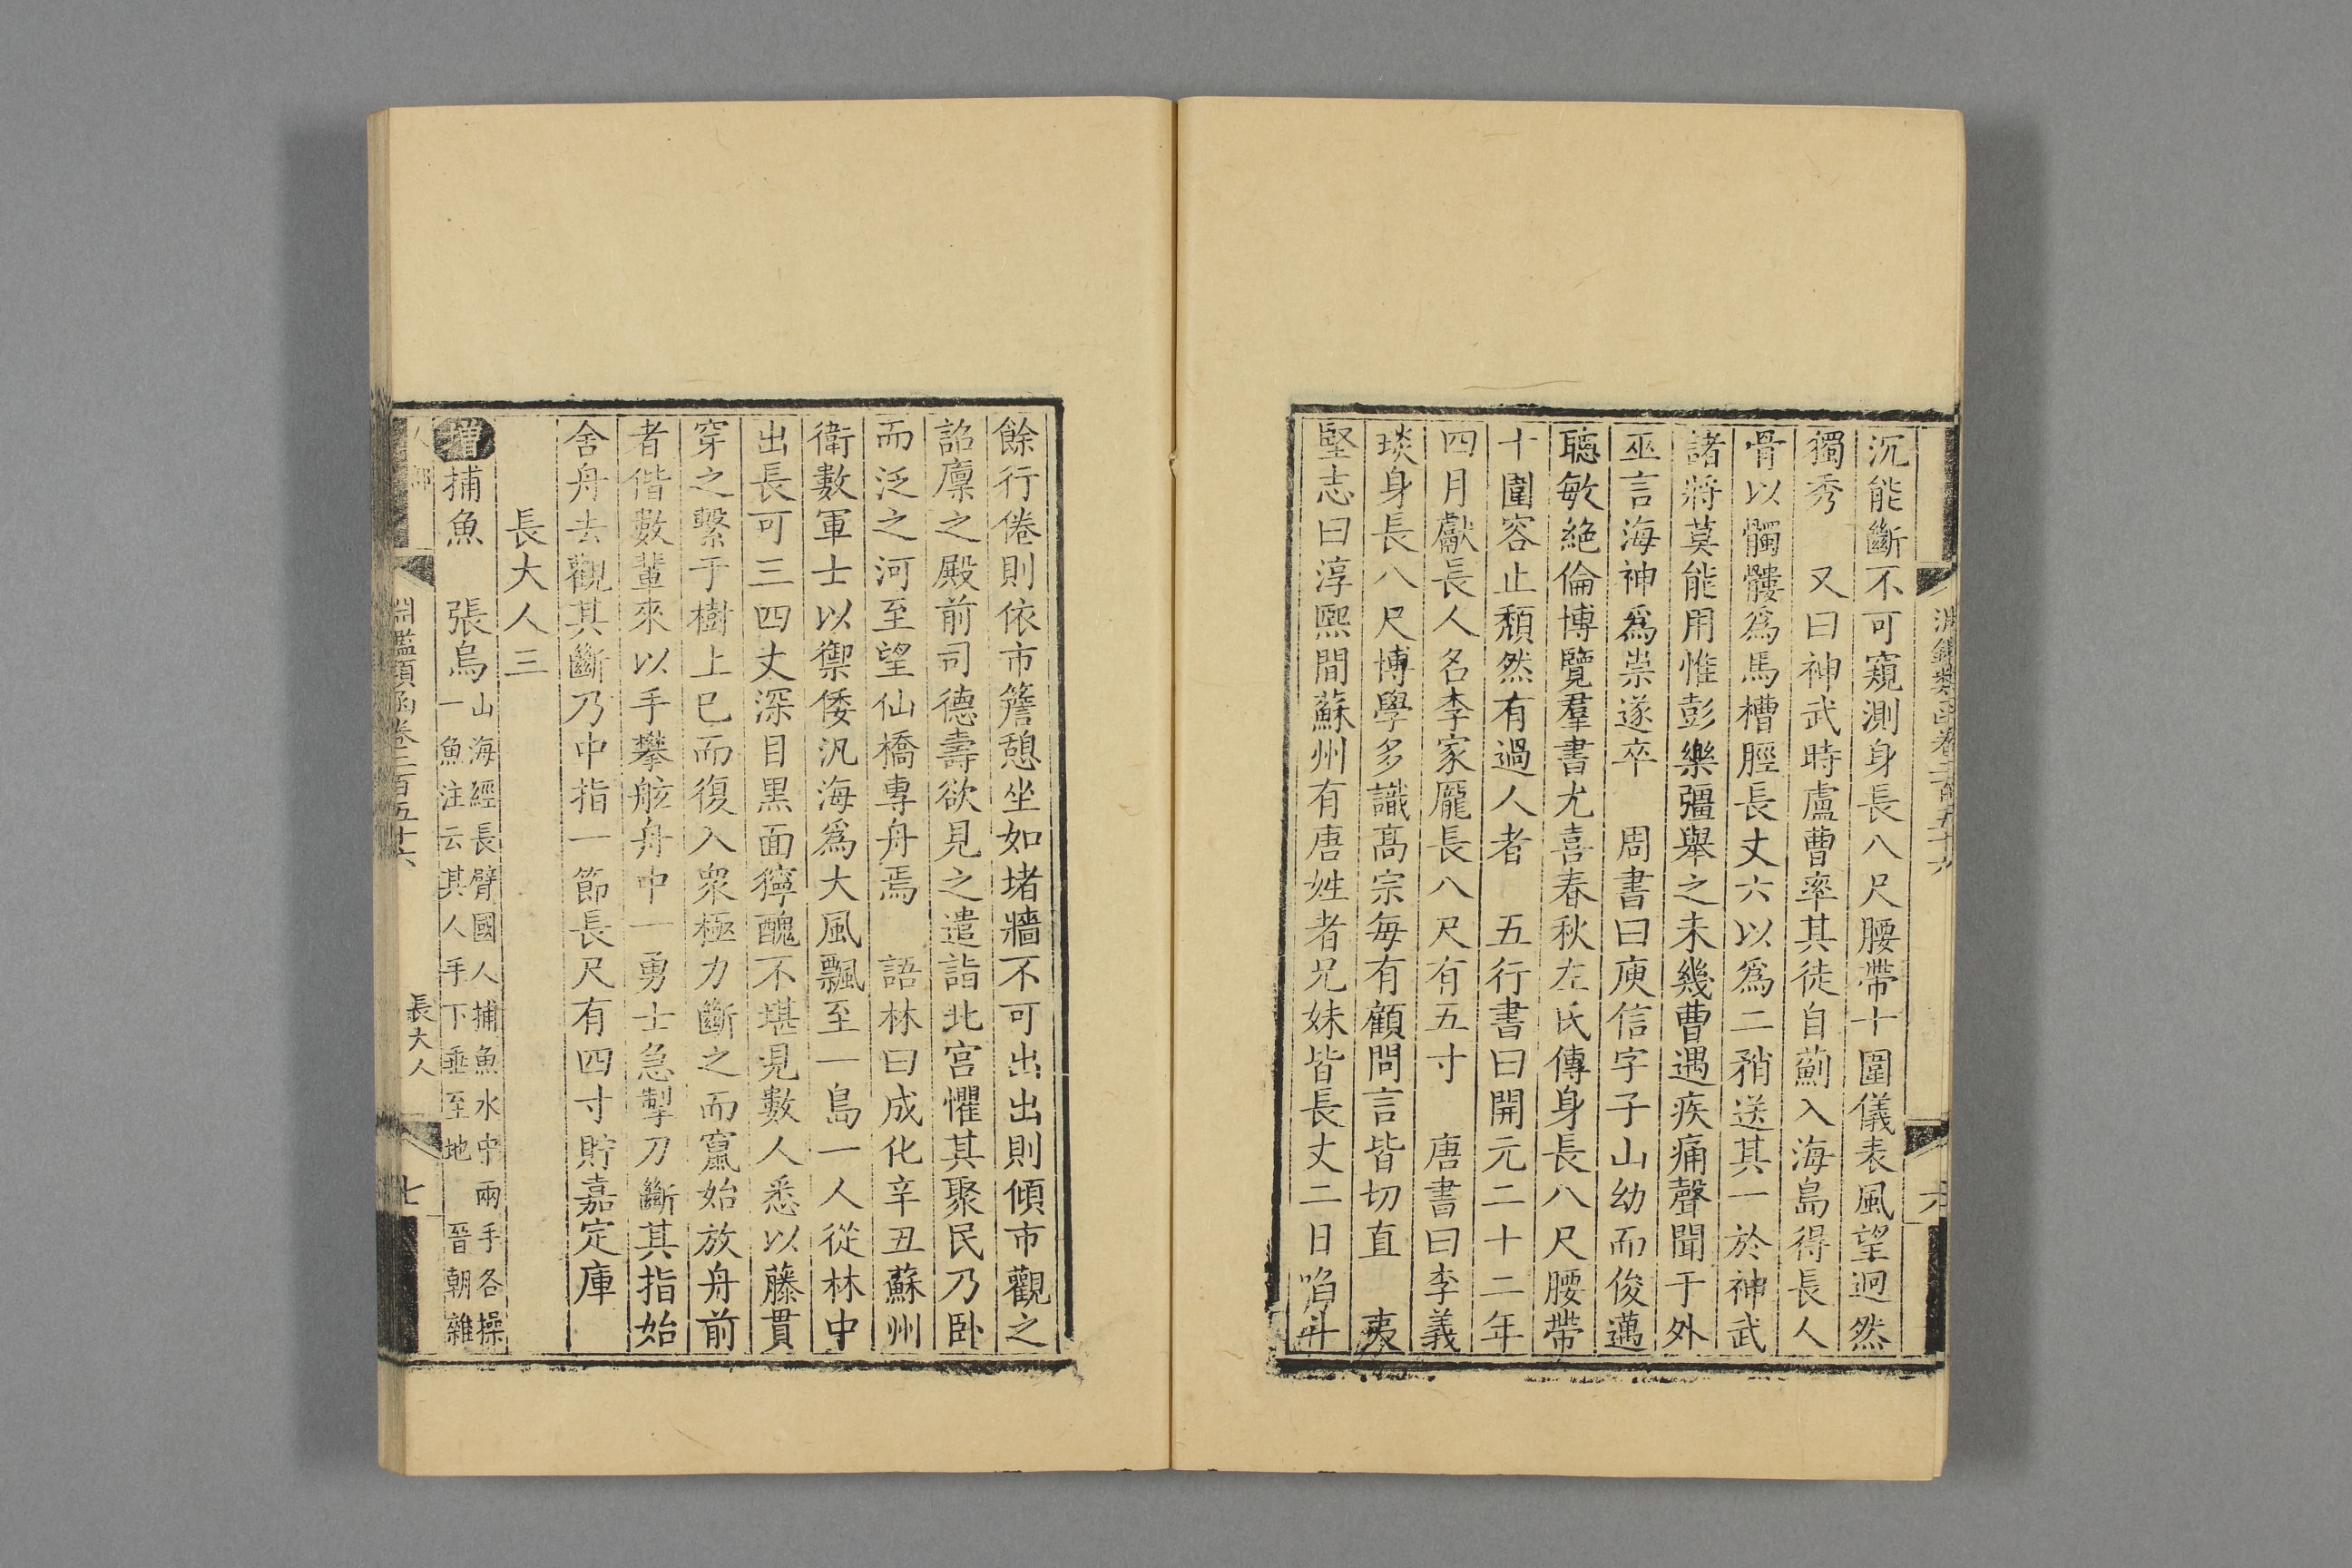 沉能斷不可窺測身長八尺腰帶十圍儀表風望迥然
獨秀　又曰神武時盧曹率其徒自薊入海島得長人
骨以髑髏爲馬槽脛長丈六以爲二矟送其一於神武
諸將莫能用惟彭樂彊舉之未幾曹遇疾痛聲聞于外
巫言海神爲祟遂卒　周書曰庾信字子山幼而俊邁
聰敏絕倫博覽羣書尤喜春秋左氏傳身長八尺腰帶
十圍容止頹然有過人者　五行書曰開元二十二年
四月獻長人名李家龎長八尺有五寸　唐書曰李義
琰身長八尺博學多識高宗每有顧問言皆切直　夷
堅志曰淳熙間蘇州有唐姓者兄妹皆長丈二日啗斗
餘行倦則依市簷憩坐如堵牆不可出出則傾市觀之
詔廩之殿前司德壽欲見之遣詣北宮懼其聚民乃臥
而泛之河至望仙橋專舟焉　語林曰成化辛丑蘇州
衛數軍士以禦倭汎海爲大風飄至一島一人從林中
出長可三四丈深目黑面獰醜不堪見數人悉以藤貫
穿之繫于樹上已而復入衆極力斷之而竄始放舟前
者偕數輩來以手攀舷舟中一勇士急掣刀斷其指始
舍舟去觀其斷乃中指一節長尺有四寸貯嘉定庫
長大人三
增捕魚　張烏
山海經長臂國人捕魚水中兩手各操
一魚注云其人手下垂至地　晉朝雜
人部
淵鑑類函卷二百五十六
長大人
七